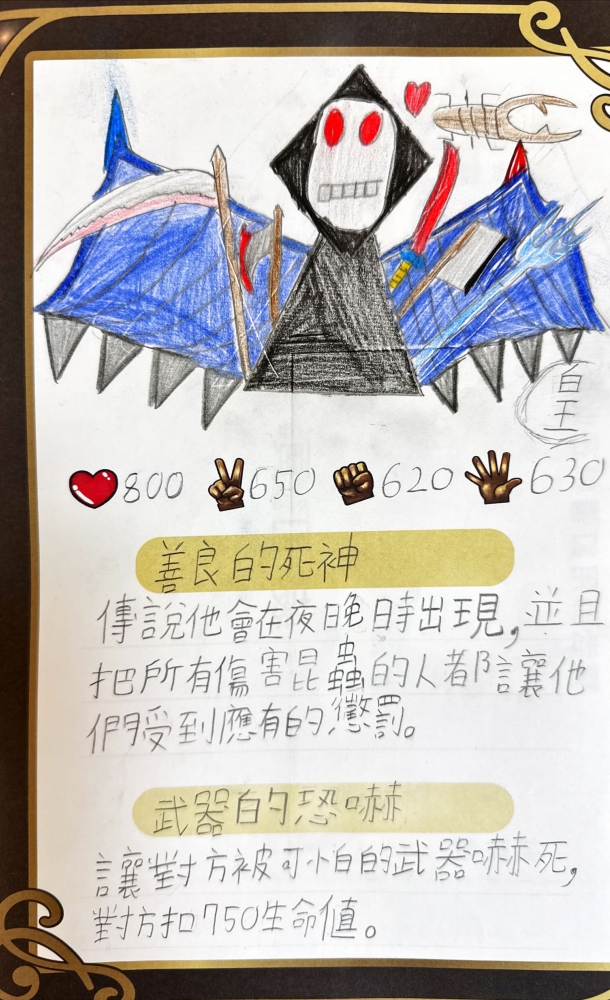 皇
800 650 620 630
善良的死神
傳說他會在夜晚時出現,並且
把所有傷害昆蟲的人都讓他
們受到應有的懲罰。
武器的恐嚇
讓對方被可小白的武器嚇死,
對方扣750生命值。